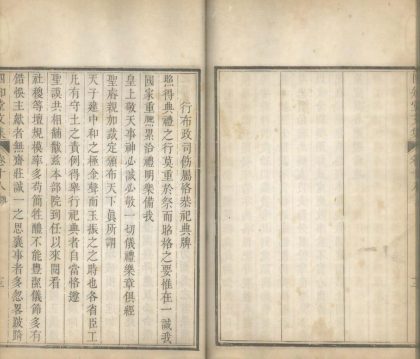 行布政司飭屬恪恭祀典牌
照得典禮之行莫重於祭而昭格之要惟在一誠我
國家重熙累洽禮明樂備我
皇上敬天事神必誠必敬一切儀禮樂章俱經
聖睿親加裁定頒布天下眞所謂
天子建中和之極金聲而玉振之之時也各省臣工
凡有守土之責例得舉行祀典者自當恪遵
聖謨共相黼黻茲本部院到任以來閱看
社稷等壇規模率多苟簡牲醴不能豐潔儀節多有
錯悞主獻者無齋莊誠一之思襄事者多忽畧跛踦
四知堂文集
卷十八